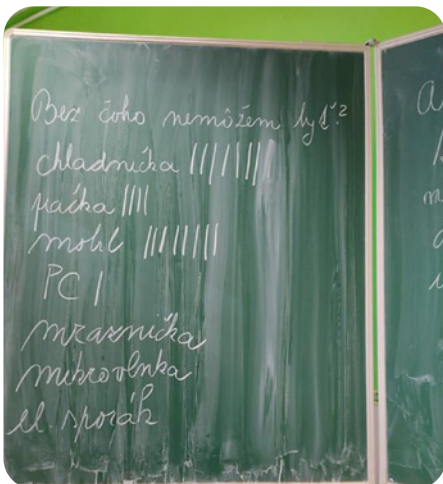 Bez čoho nemôžem byť?
chladnička ||||||||
pračka ||||
mobil ||||||||
PC |
mraznička
mikrovlnka
el. sporák